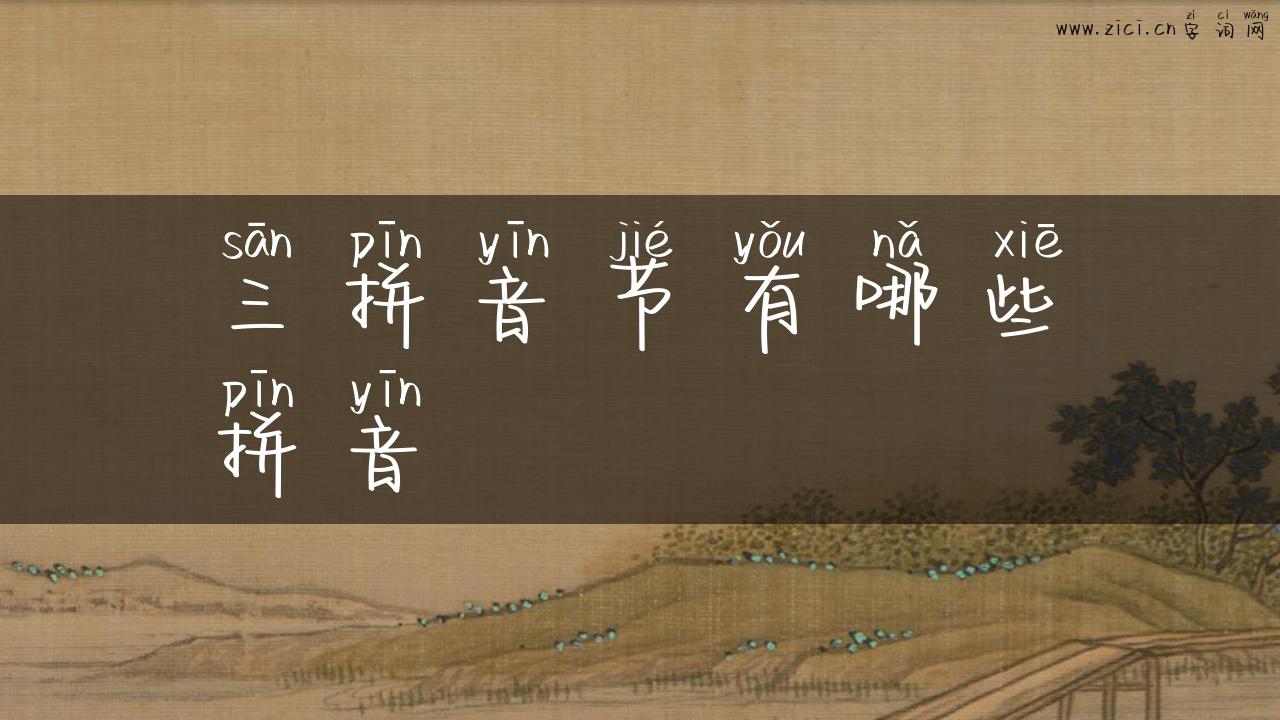 zì cí wǎng
www.zici.cn字词网
sān pīn yīn jié yǒu nǎ xiē
三拼音节有哪些
pīn yīn
拼音